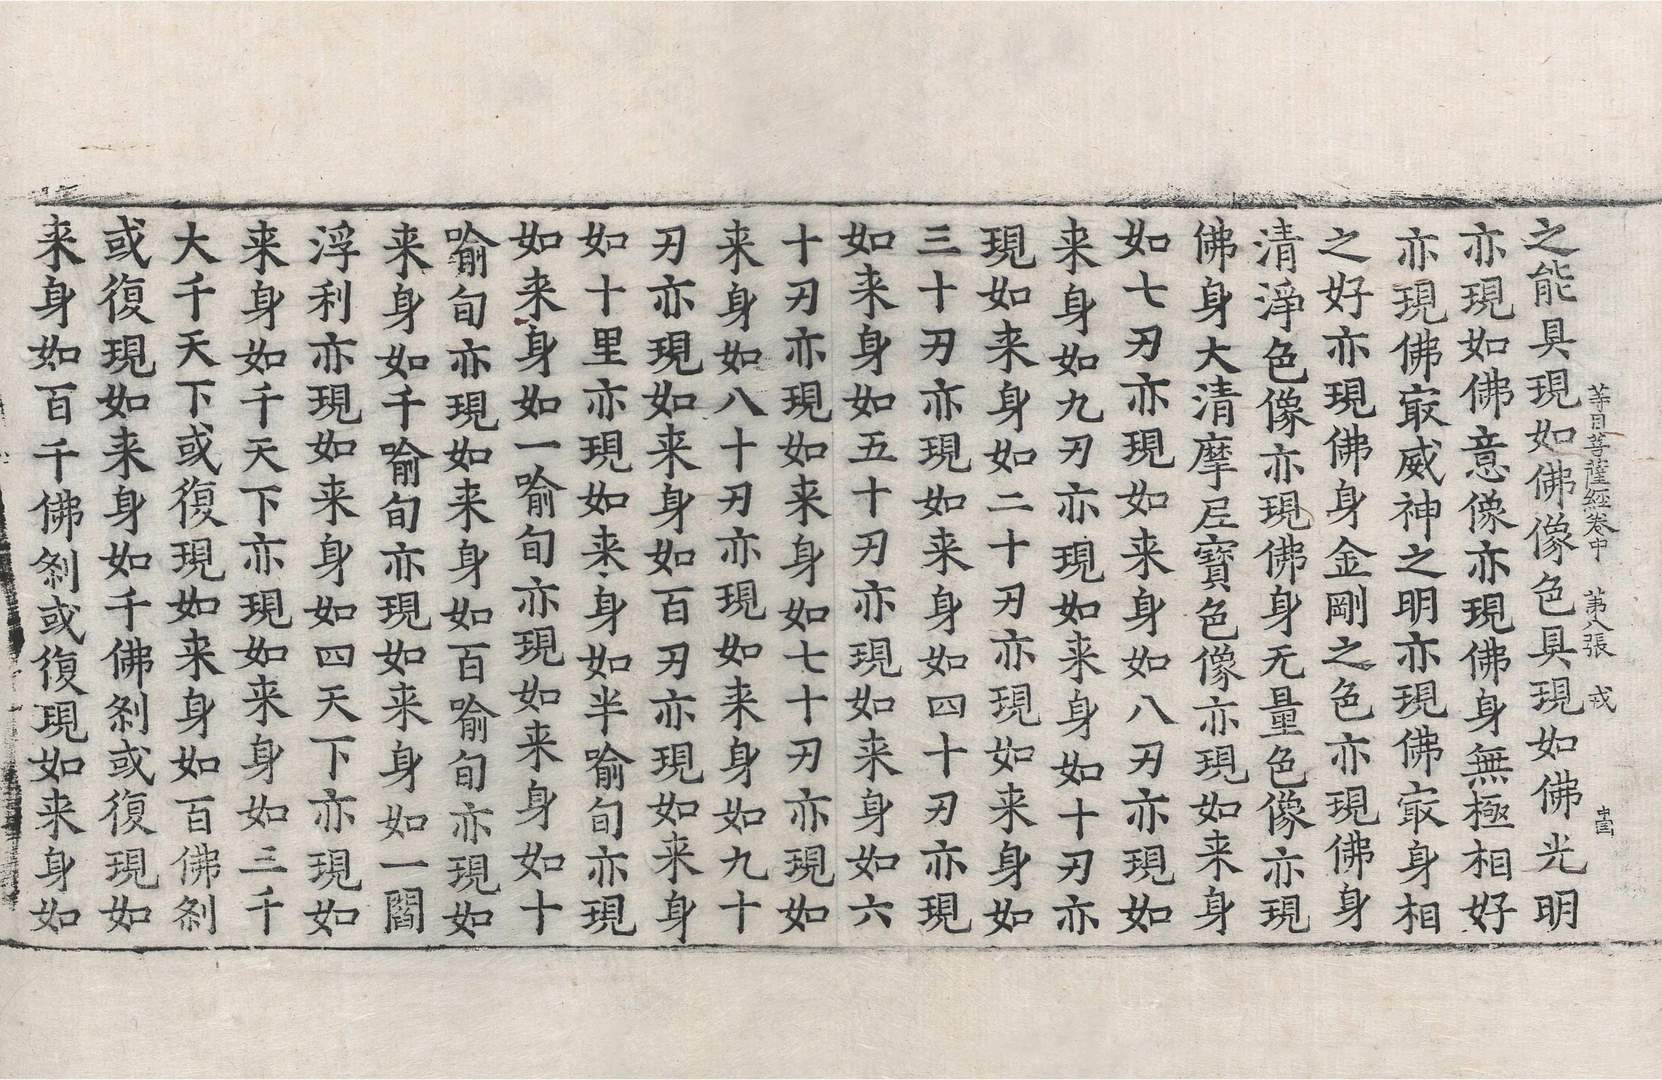 等目菩薩經卷中 第八張 戎
之能具現如佛像色具現如佛光明
亦現如佛意像亦現佛身無極相好
亦現佛㝡威神之明亦現佛㝡身相
之好亦現佛身金剛之色亦現佛身
清淨色像亦現佛身无量色像亦現
佛身大清摩尼寶色像亦現如来身
如七刃亦現如来身如八刃亦現如
来身如九刃亦現如来身如十刃亦
現如来身如二十刃亦現如来身如
三十刃亦現如来身如四十刃亦現
如来身如五十刃亦現如来身如六
十刃亦現如来身如七十刃亦現如
来身如八十刃亦現如来身如九十
刃亦現如来身如百刃亦現如来身
如十里亦現如来身如半喻旬亦現
如来身如一喻旬亦現如来身如十
喻旬亦現如来身如百喻旬亦現如
来身如千喻旬亦現如来身如一閻
浮利亦現如来身如四天下亦現如
来身如千天下亦現如来身如三千
大千天下或復現如来身如百佛剎
或復現如来身如千佛剎或復現如
来身如百千佛剎或復現如来身如